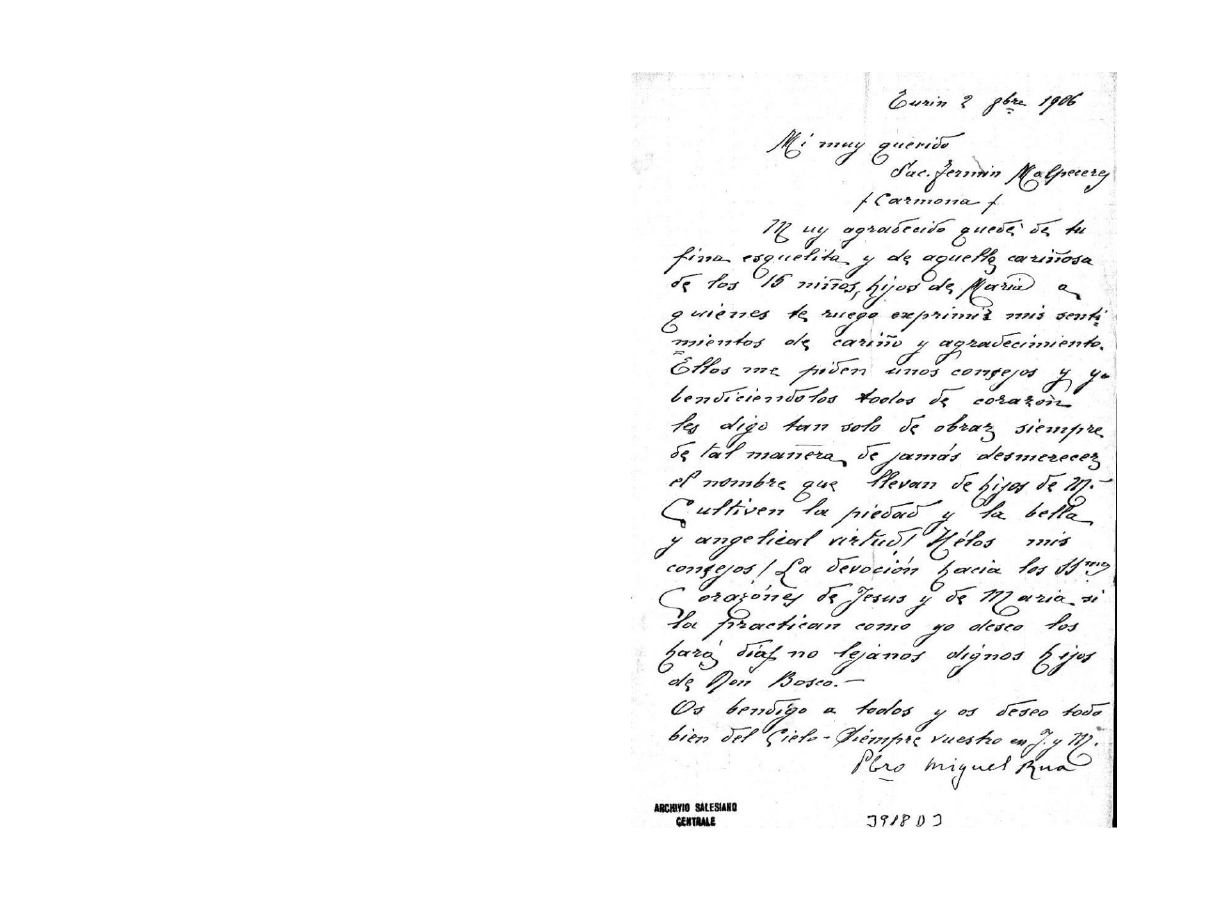 Turin 2 9bre 1906
Mi muy querido
Sac. Fermin Malpecerez
/ Carmona /
Muy agradecido quedé de tu
fina esquelita y de aquella cariñosa
de los 15 niños, hijos de Maria a
quienes te ruego exprimir mis senti-
mientos de cariño y agradecimiento.
Ellos me piden unos consejos y yo
bendiciendolos todos de corazón
les digo tan solo de obrar siempre
de tal mañera de jamás desmerecer
el nombre que llevan de hijos de M.-
Cultiven la piedad y la bella
y angelical virtud! Hélos mis
consejos! La devoción hacia los SSmos
Corazónes de Jesus y de Maria si
la practican como yo deseo los
hará días no lejanos dignos hijos
de Don Bosco.-
Os bendigo a todos y os deseo todo
bien del Cielo - Siempre vuestro en J. y M.
Pbro Miguel Rua
ARCHIVIO SALESIANO
CENTRALE
3918 D 3